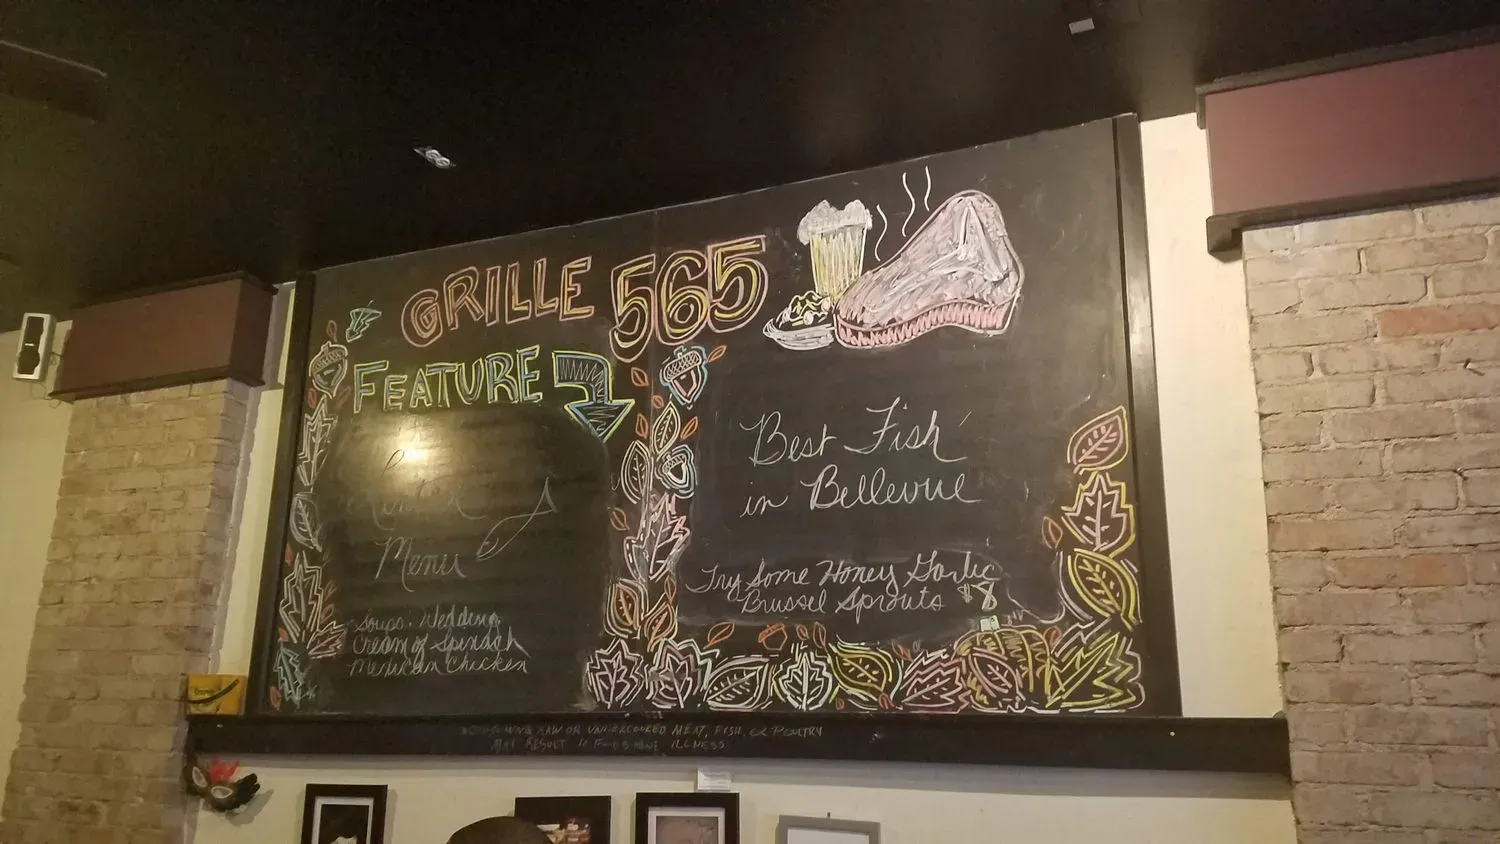 GRILLE 565
FEATURE
Menu
Soups: Wedding,
Cream of Spinach
Mexican Chicken
Best Fish
in Bellevue
Try Some Honey Garlic
Brussel Sprouts $8
RAW OR UNDERCOOKED MEAT, FISH, OR POULTRY
MAY RESULT IN FOODBORNE ILLNESS